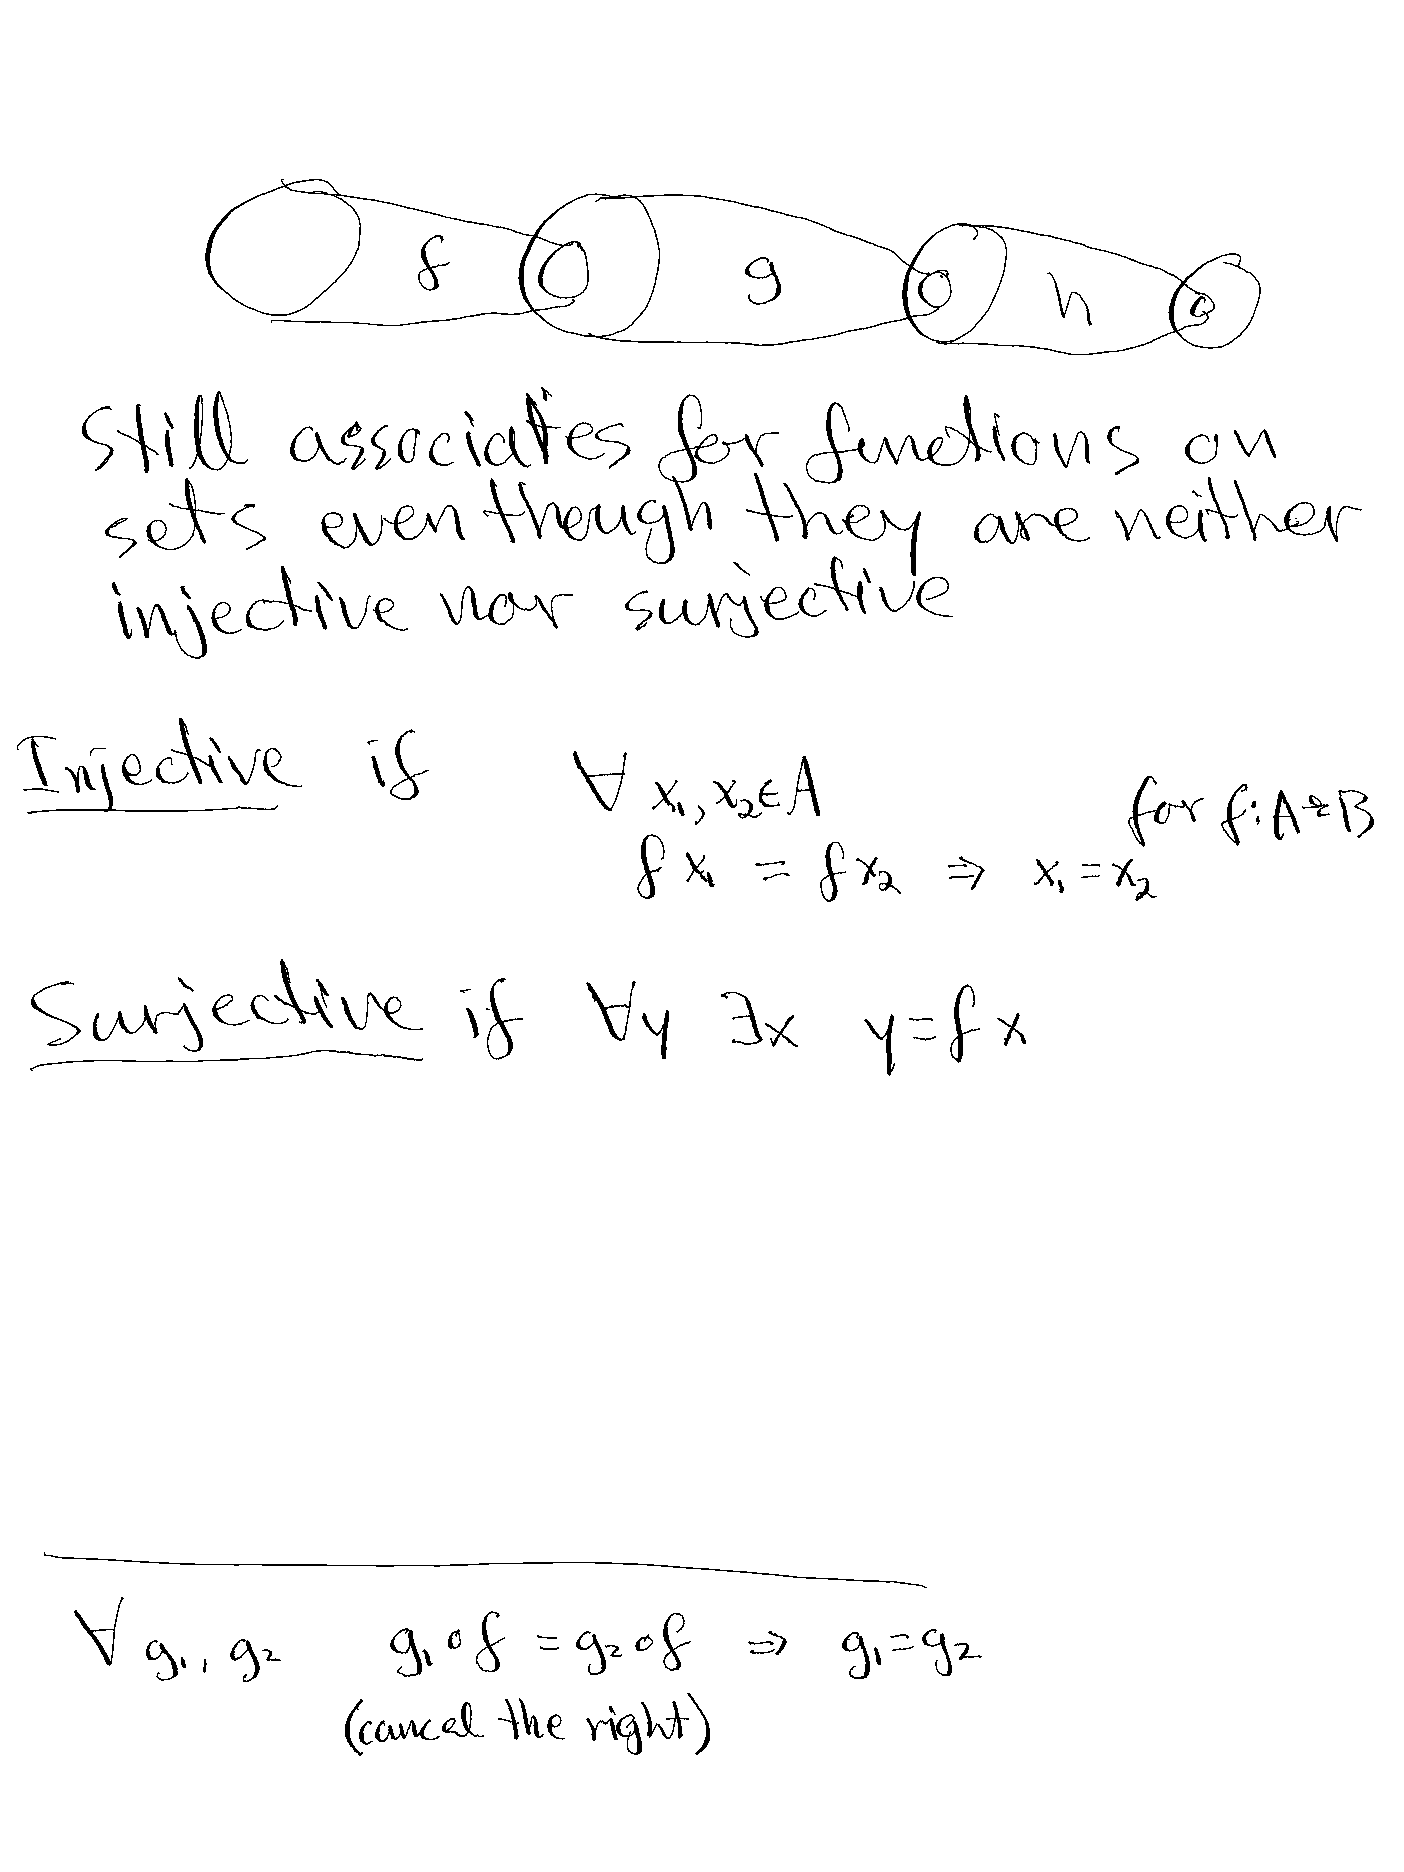 f g h
Still associates for functions on
sets even though they are neither
injective nor surjective
Injective if ∀ x₁, x₂ ∈ A
for f: A → B
f x₁ = f x₂ ⇒ x₁ = x₂
Surjective if ∀y ∃x y = f x
∀ g₁, g₂ g₁ ∘ f = g₂ ∘ f ⇒ g₁ = g₂
(cancel the right)